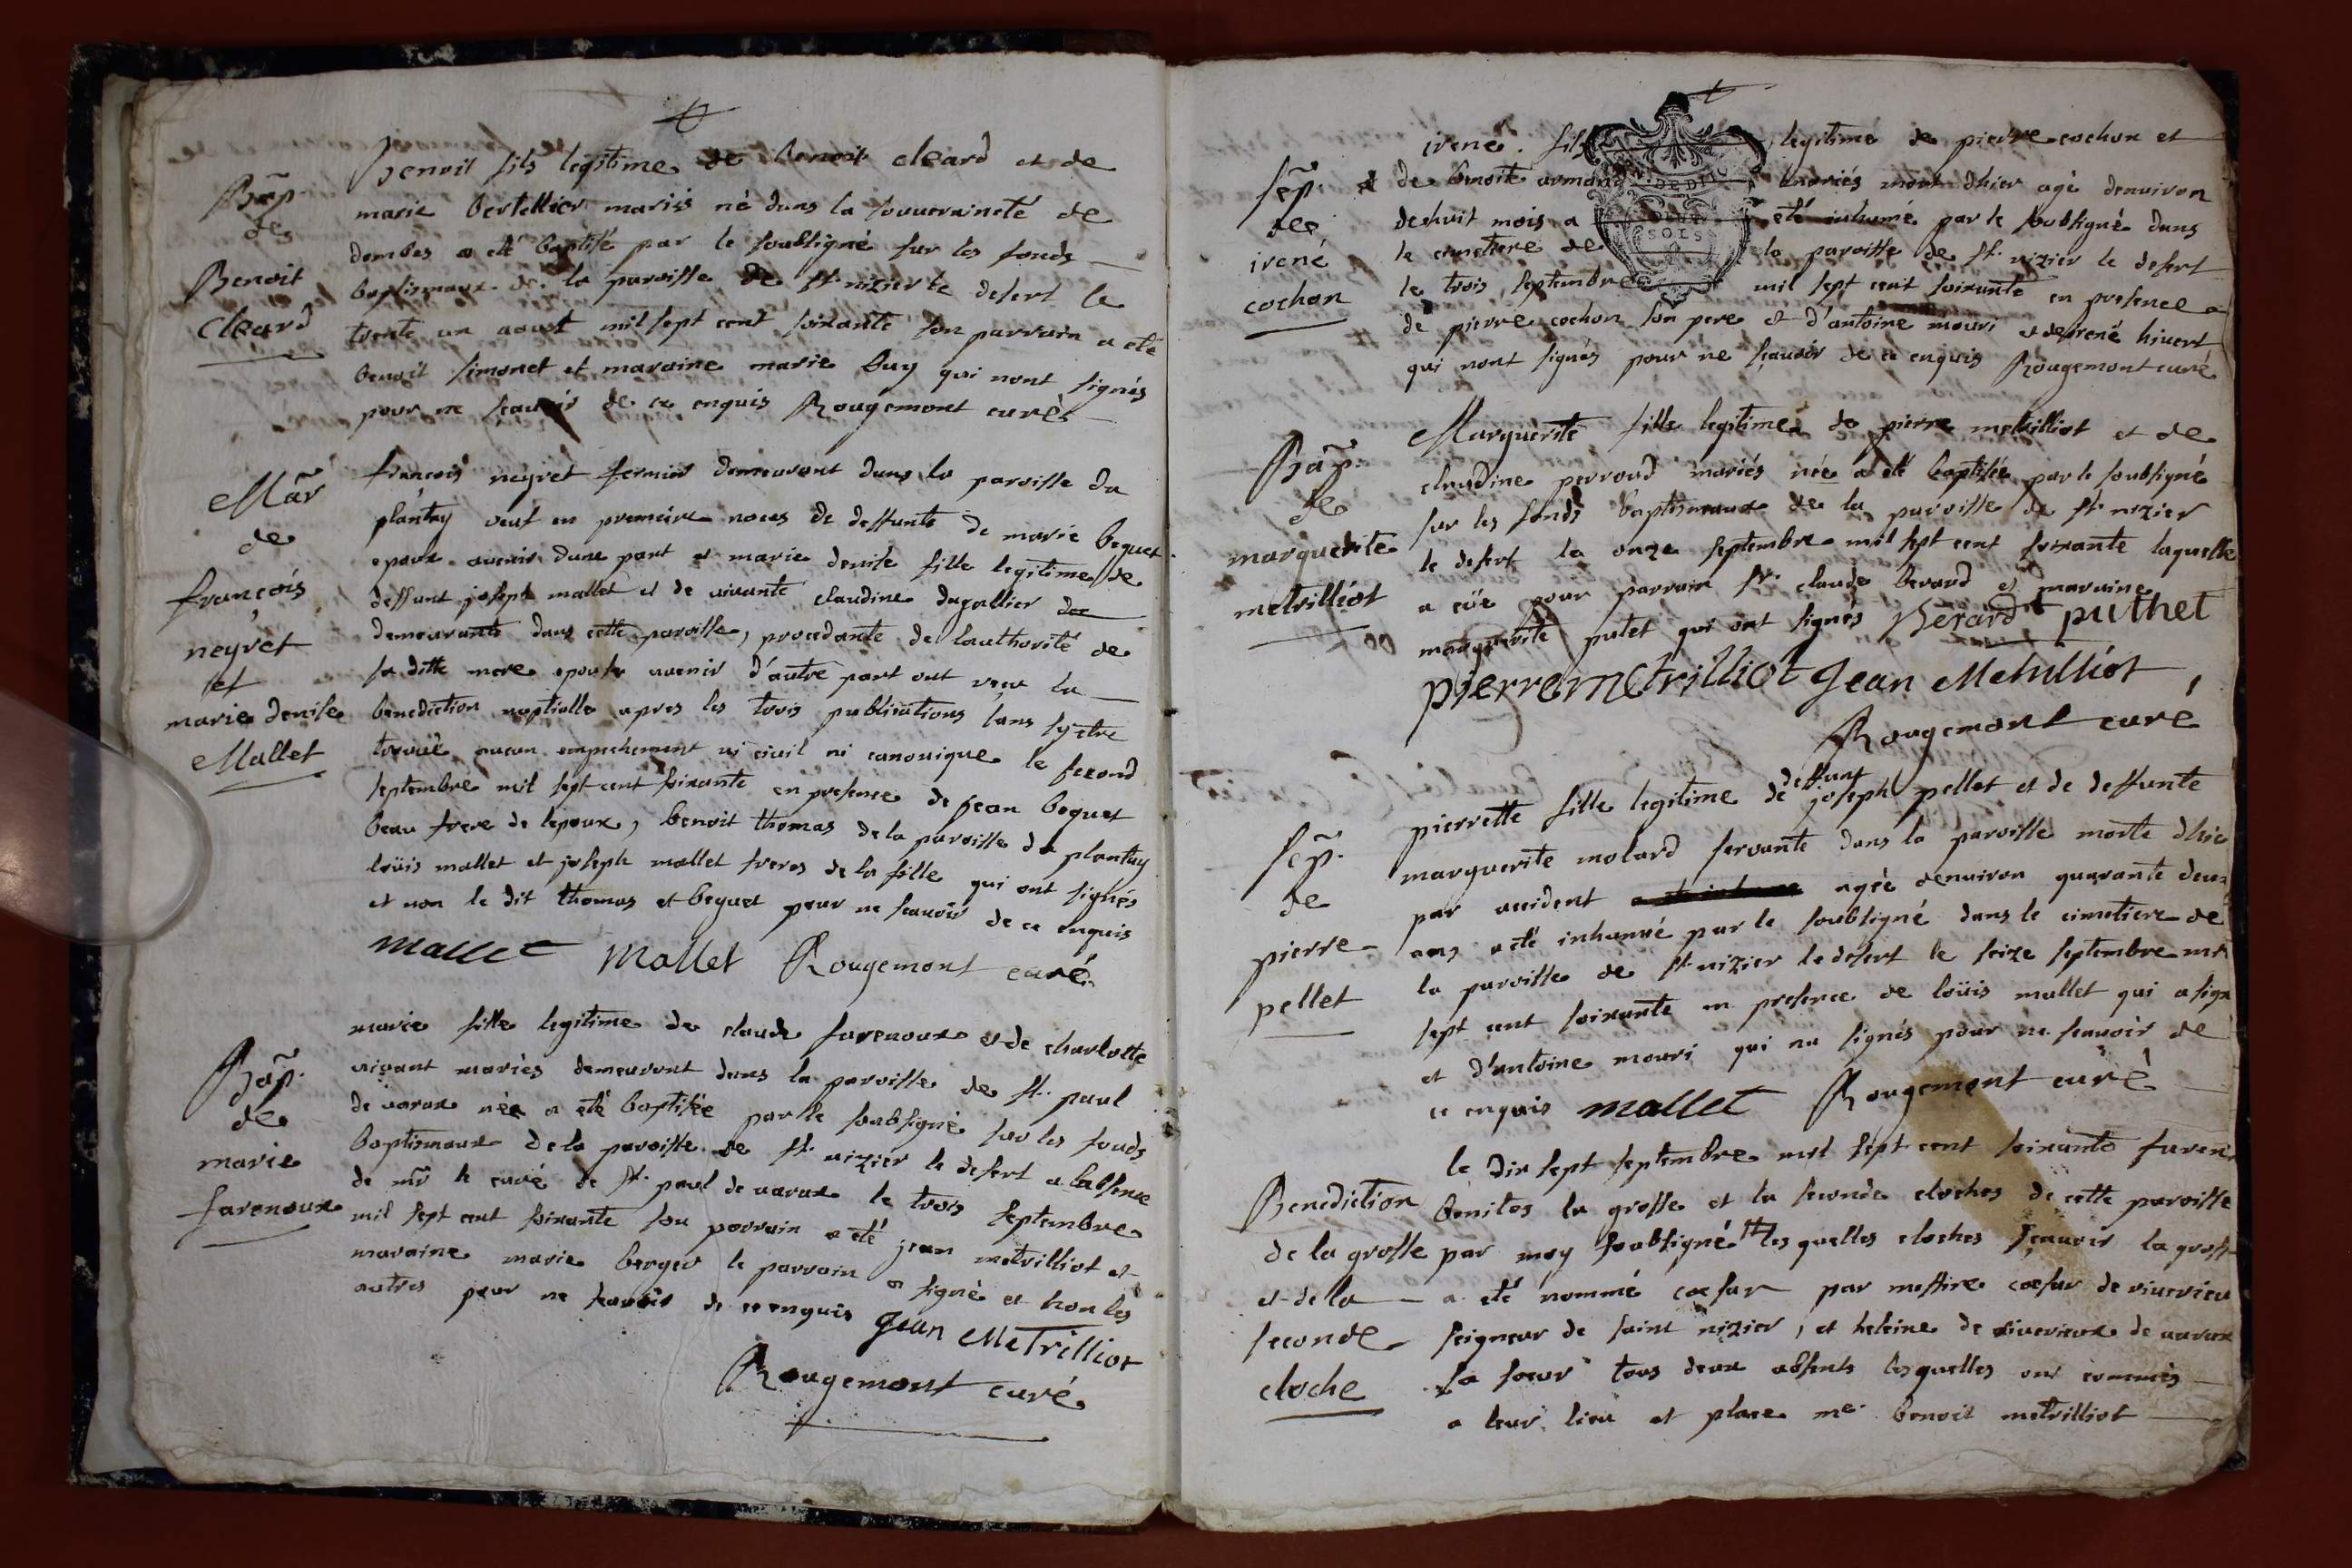 Bap.
de
Benoit
Cleard
Benoit fils legitime de benoit cleard et de
marie bertellier mariés né dans la souveraineté de
dombes a eté baptisé par le soubsigné sur les fonds
baptismaux de la paroisse de st. nizier le desert le
trente un aoust mil sept cent soixante son parrain a eté
benoit simonet et maraine marie buy qui nont signés
pour ne scavoir de ce enquis Rougemont curé
Mar
de
françois
neyret
et
marie denise
Mallet
francois neyret fermier demeurant dans la paroisse du
plantay veuf en premeire noces de deffunte de marie beguet
epoux avenir dune part et marie denise fille legitime de
deffunt joseph mallet et de vivante claudine dugallier
demeurante dans cette paroisse, procedante de lauthorité de
sa ditte mere epouse avenir d'autre part ont reçu la
benediction nuptialle apres les trois publications sans sy etre
trouvé aucun empechement ni civil ni canonique le second
septembre mil sept cent soixante en presence de jean beguet
beau frere de lepoux, benoit thomas de la paroisse du plantay
loüis mallet et joseph mallet freres de la fille qui ont signés
et non le dit thomas et beguet pour ne scavoir de ce enquis
mallet Mallet Rougemont curé
Bap.
de
marie
favenoux
marie fille legitime de claude favenoux et de charlotte
vivant mariés demeurant dans la paroisse de st. paul
de varax née a eté baptisée par le soubsigné sur les fonds
baptismaux de la paroisse de st. nizier le desert a labsence
de mr le curé de st. paul de varax le trois septembre
mil sept cent soixante son parrain a eté jean metrilliot et
maraine marie berger le parrain a signé et non les
autres pour ne scavoir de ce enquis Jean Metrilliot
Rougemont curé
sep.
de
irené
cochon
irené fils legitime de pierre cochon et
de benoite armand mariés mort dhier agé denviron
deshuit mois a eté inhumé par le soubsigné dans
le cimetiere de la paroisse de st. nizier le desert
le trois septembre mil sept cent soixante en presence
de pierre cochon son pere et d'antoine mouri et de rené hivert
qui nont signés pour ne sçavoir de ce enquis Rougemont curé
Bap.
de
marguerite
metrilliot
Marguerite fille legitime de pierre metrilliot et de
claudine perroud mariés née a eté baptisée par le soubsigné
sur les fonds baptismaux de la paroisse de st. nizier
le desert le onze septembre mil sept cent soixante laquelle
a eüe pour parrain sr. claude berard et maraine
marguerite putet qui ont signés Berard puthet
pierre metrilliot Jean Metrilliot
Rougemont curé
sep.
de
pierre
pellet
pierrette fille legitime de deffunt joseph pellet et de deffunte
marguerite molard servante dans la paroisse morte dhier
par accident agée denviron quarante deux
ans a eté inhumé par le soubsigné dans le cimetiere de
la paroisse de st. nizier le desert le seize septembre mil
sept cent soixante en presence de loüis mallet qui a signé
et d'antoine mouri qui na signés pour ne scavoir de
ce enquis mallet Rougemont curé
Benediction
de la grosse
et de la
seconde
cloche
le dix sept septembre mil sept cent soixante furent
benites la grosse et la seconde cloches de cette paroisse
par moy soubsigné lesquelles cloches sçavoir la grosse
a eté nommé cæsar par messire cæsar de riverieu
seigneur de saint nizier, et heleine de riverieux de varax
sa soeur tous deux absents lesquelles ont commis
a leur lieu et place me. benoit metrilliot